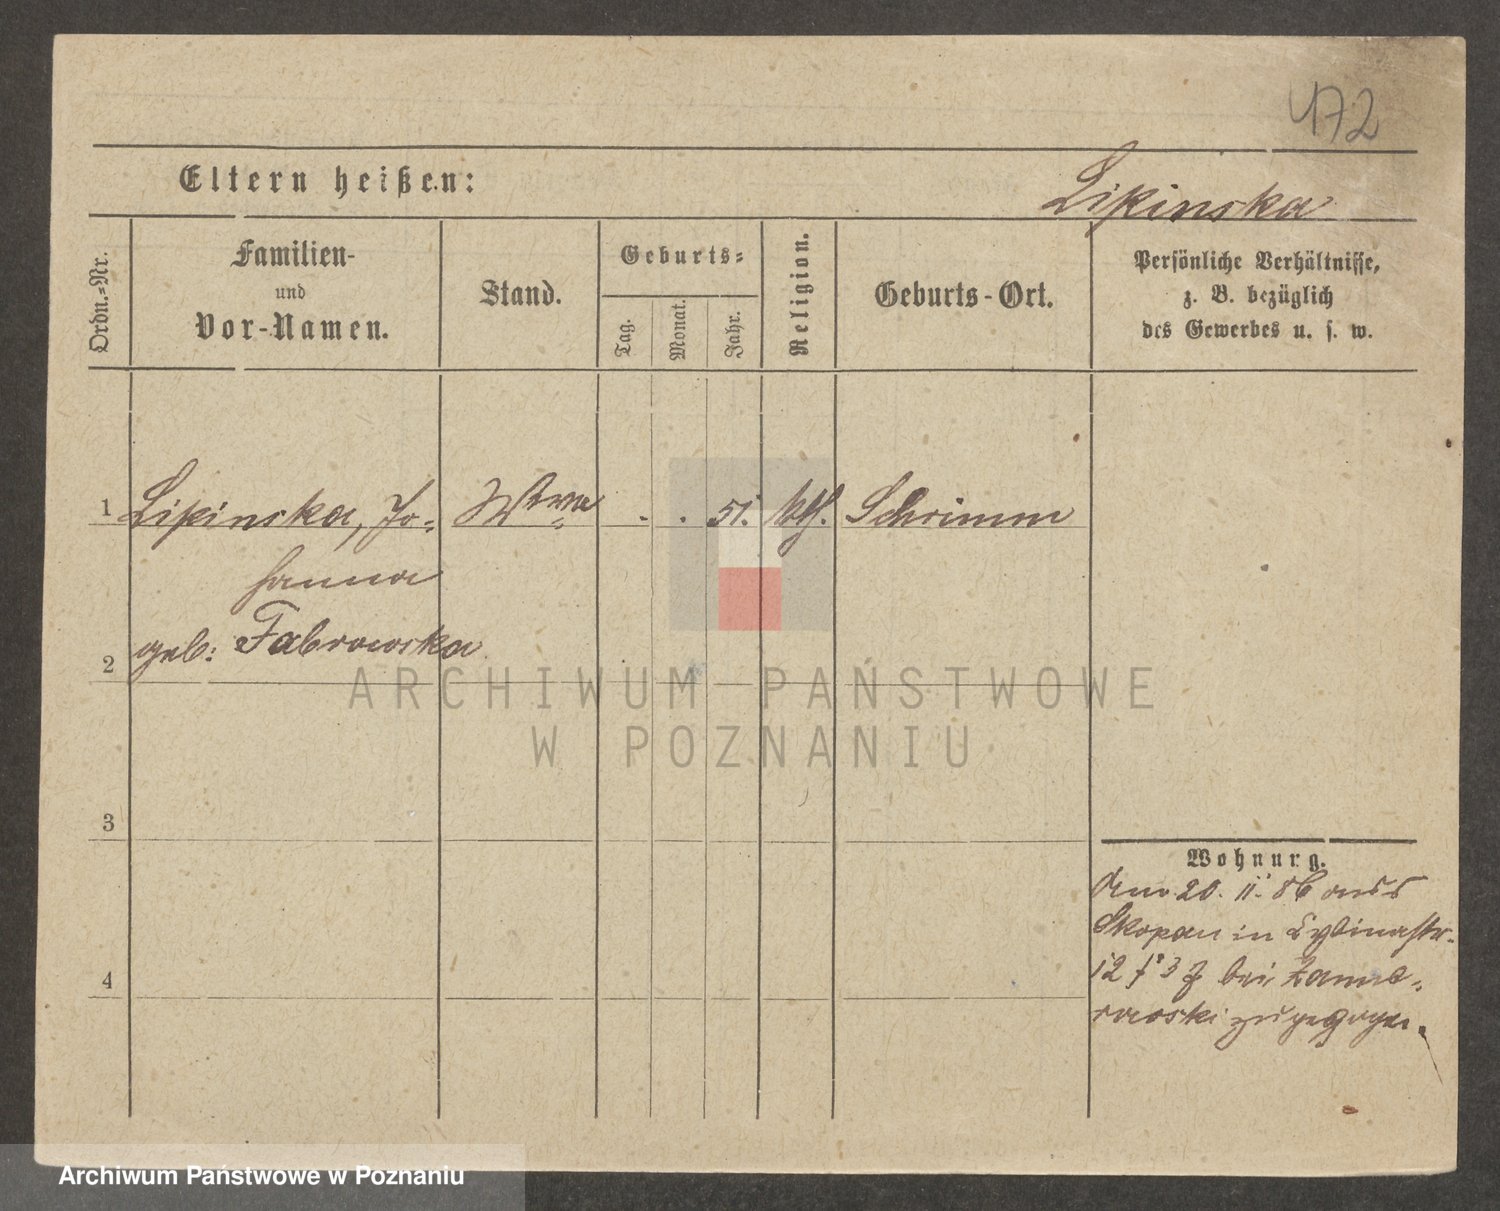 472
Eltern heißen:
Lipinska
Ordn.-Nr.
Familien-
und
Vor-Namen.
Stand.
Geburts-
Tag.
Monat.
Jahr.
Religion.
Geburts-Ort.
Persönliche Verhältnisse,
z. B. bezüglich
des Gewerbes u. s. w.
1 Lipinska, Jo- Wwe . . 51. kth. Schrimm
hanna
2 geb: Fabrowska
ARCHIWUM PAŃSTWOWE
W POZNANIU
3
Wohnung.
Am 20. 11. 86 aus
Skopan in Cybinastr.
4
12 bei
rowski zugezogen.
Archiwum Państwowe w Poznaniu